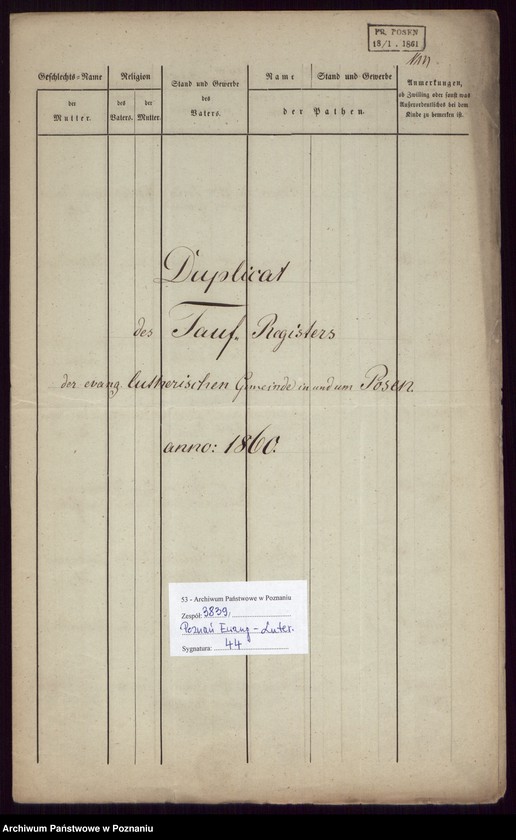 PR. POSEN
18/1. 1861
Geschlechts=Name
der
Mutter.
Religion
des
Vaters.
der
Mutter.
Stand und Gewerbe
des
Vaters.
Name
Stand und Gewerbe
der Pathen.
Anmerkungen,
ob Zwilling oder sonst was
Außerordentliches bei dem
Kinde zu bemerken ist.
Duplicat
des Tauf. Registers
der evang. lutherischen Gemeinde in und um Posen.
anno: 1860.
53 - Archiwum Państwowe w Poznaniu
Zespół: 3839,
Poznań Ewang - Luter.
Sygnatura: 44
Archiwum Państwowe w Poznaniu